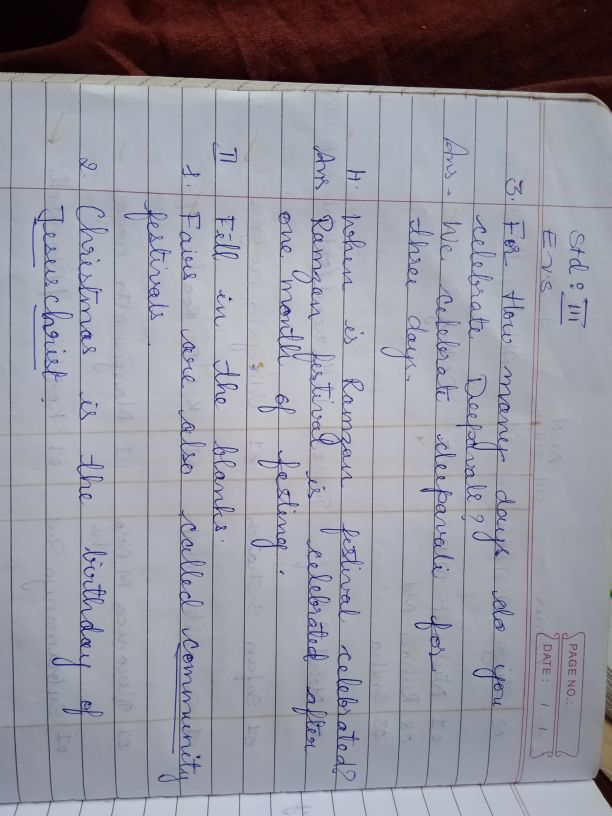 PAGE NO.:
DATE: / /
Std : III
EVS
3. For How many days do you
celebrate Deepavali?
Ans - We celebrate deepavali for
three days.
4. When is Ramzan festival celebrated?
Ans Ramzan festival is celebrated after
one month of fasting.
II Fill in the blanks.
1. Fairs are also called community
festivals.
2. Christmas is the birthday of
Jesus christ.